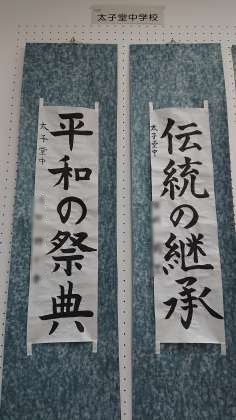 太子堂中学校
伝統の継承
太子堂中
平和の祭典
太子堂中